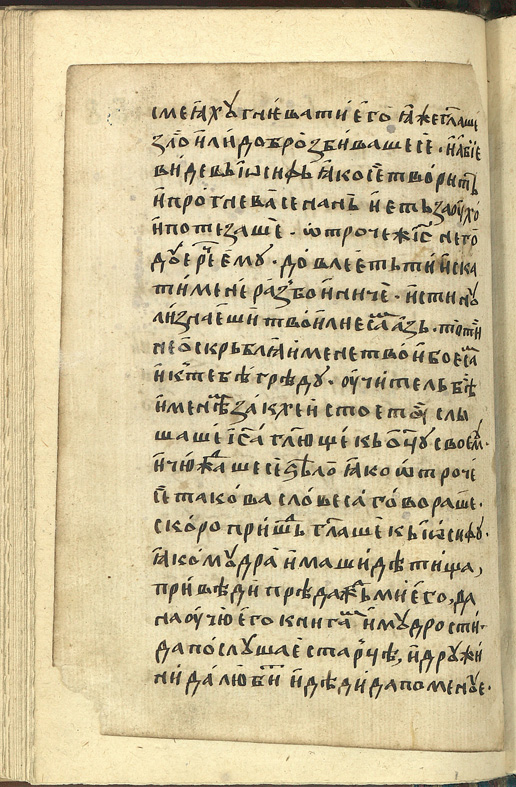 имеꙗ хꙋ гнѣвати его ꙗже глаше
зло или добро збиваше се · и абїе
видевь їѡсифь ꙗко се творить
и прогнева се на нь и еть за оухо
и потезаше · ѡтроче же їс͠ него
дꙋе рече ему · довлѣеть ти иска
ти мене разбойниче · истинꙋ
ли знаеши твои ли есмь азь · ть ти
не оскрьблꙗи мене твои бо есмь
и к тебѣ гредꙋ · оучитель бѣ
именемь закхеи стое тꙋ слы
шаше їса глюще кь оц͠ꙋ своемꙋ ·
и чюждаше се ѕѣло ꙗко ѡтроче
се такова словеса говораше ·
скоро пришьд глаше кь їѡсифꙋ ·
ꙗко мꙋдра имаши дѣтища,
приведи предаждь ми его, да
наоучю его книгамь и мꙋдрости ·
да послꙋшае старче, и дрꙋжи
ни да любить и дѣди да поменꙋе ·